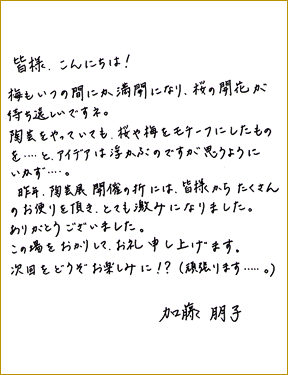 皆様、こんにちは!
梅もいつの間にか満開になり、桜の開花が
待ち遠しいですネ。
陶芸をやっていても、桜や梅をモチーフにしたもの
を‥‥と、アイデアは浮かぶのですが思うように
いかず‥‥。
昨年、陶芸展開催の折には、皆様からたくさん
のお便りを頂き、とても激みになりました。
ありがとうございました。
この場をおかりして、お礼申し上げます。
次回をどうぞお楽しみに!?(頑張ります‥‥。)
加藤 朋子